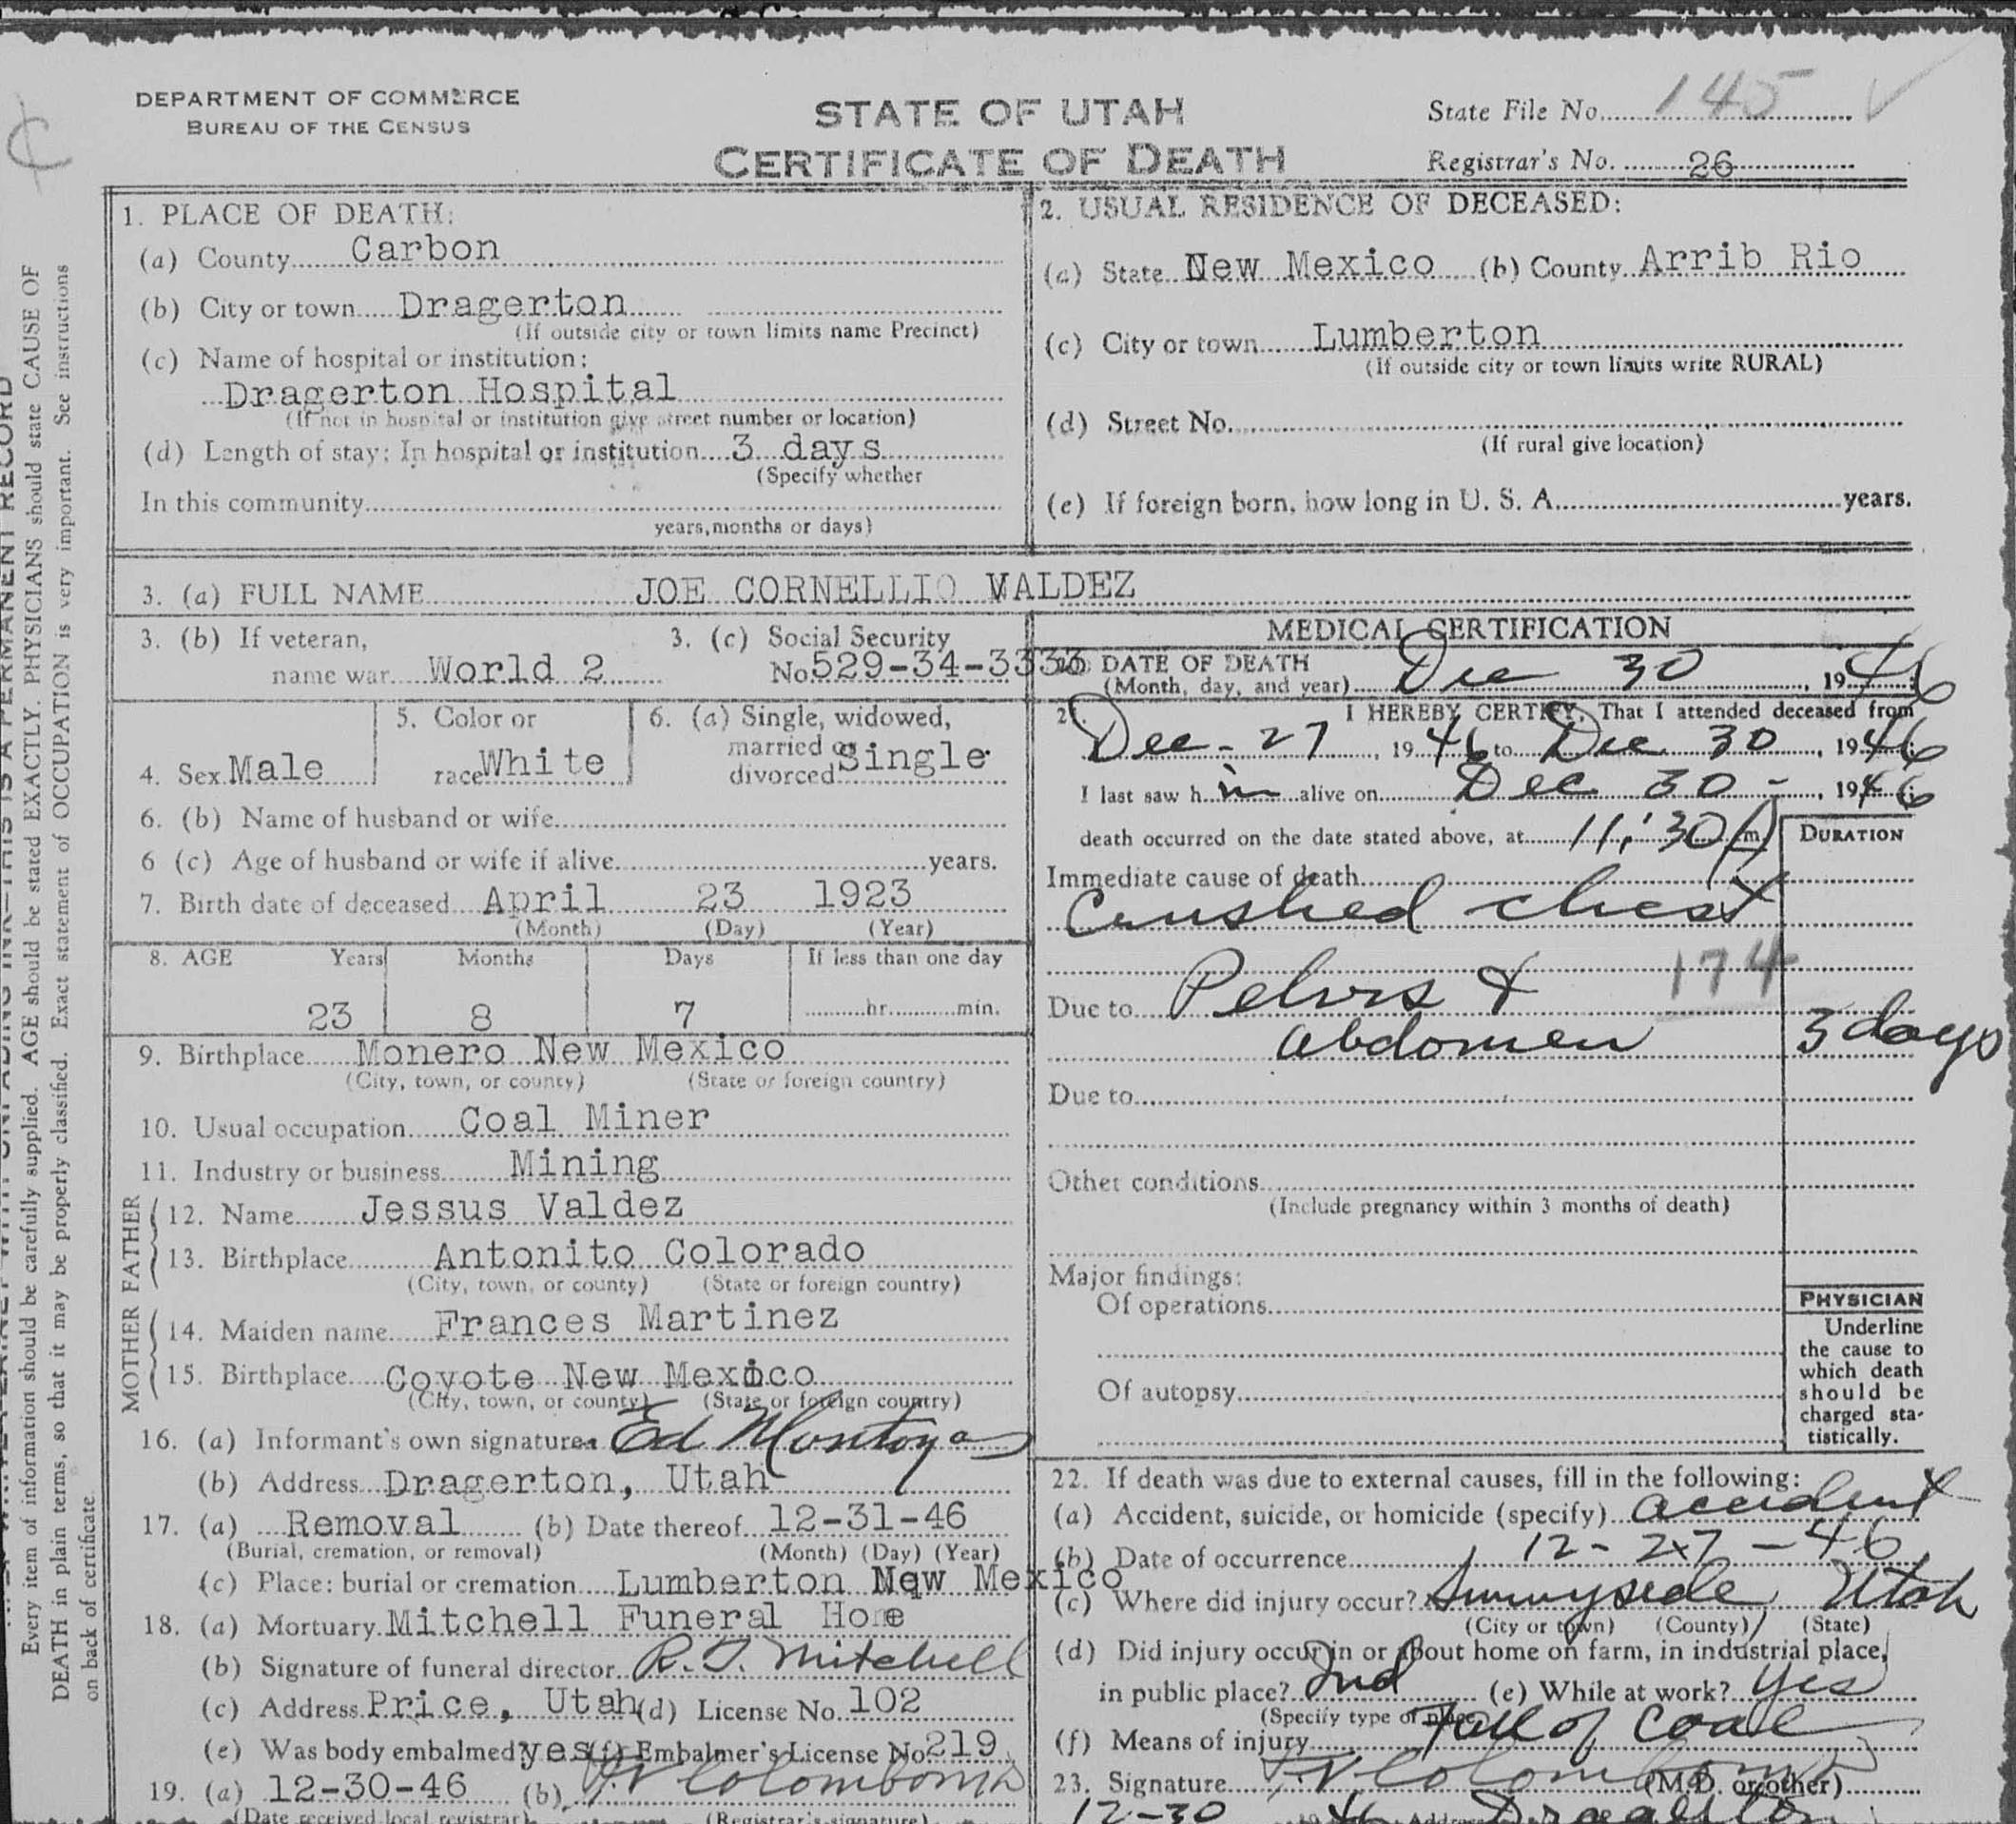 DEPARTMENT OF COMMERCE
BUREAU OF THE CENSUS
STATE OF UTAH
CERTIFICATE OF DEATH
State File No. 145
Registrar's No. 26
Every item of information should be carefully supplied. AGE should be stated EXACTLY. PHYSICIANS should state CAUSE OF
DEATH in plain terms, so that it may be properly classified. Exact statement of OCCUPATION is very important. See instructions
on back of certificate
1. PLACE OF DEATH:
(a) County Carbon
(b) City or town Dragerton
(If outside city or town limits name Precinct)
(c) Name of hospital or institution:
Dragerton Hospital
(If not in hospital or institution give street number or location)
(d) Length of stay: In hospital or institution 3 days
(Specify whether
In this community
years, months or days)
2. USUAL RESIDENCE OF DECEASED:
(a) State New Mexico (b) County Arrib Rio
(c) City or town Lumberton
(If outside city or town limits write RURAL)
(d) Street No.
(If rural give location)
(e) If foreign born, how long in U. S. A. years.
3. (a) FULL NAME JOE CORNELLIO VALDEZ
3. (b) If veteran,
name war World 2
3. (c) Social Security
No. 529-34-3333
4. Sex Male
5. Color or
race White
6. (a) Single, widowed,
married or
divorced Single
6. (b) Name of husband or wife
6 (c) Age of husband or wife if alive years.
7. Birth date of deceased April 23 1923
(Month) (Day) (Year)
8. AGE Years Months Days If less than one day
23 8 7 hr. min.
9. Birthplace Monero New Mexico
(City, town, or county) (State or foreign country)
10. Usual occupation Coal Miner
11. Industry or business Mining
FATHER
12. Name Jessus Valdez
13. Birthplace Antonito Colorado
(City, town, or county) (State or foreign country)
MOTHER
14. Maiden name Frances Martinez
15. Birthplace Coyote New Mexico
(City, town, or county) (State or foreign country)
16. (a) Informant's own signature Ed Montoya
(b) Address Dragerton, Utah
17. (a) Removal (b) Date thereof 12-31-46
(Burial, cremation, or removal) (Month) (Day) (Year)
(c) Place: burial or cremation Lumberton New Mexico
18. (a) Mortuary Mitchell Funeral Home
(b) Signature of funeral director R. J. Mitchell
(c) Address Price, Utah (d) License No. 102
(e) Was body embalmed yes (f) Embalmer's License No 219
19. (a) 12-30-46 (b)
(Date received local registrar) (Registrar's signature)
MEDICAL CERTIFICATION
20. DATE OF DEATH
(Month, day, and year) Dec 30, 1946
21. I HEREBY CERTIFY, That I attended deceased from
Dec - 27, 1946 to Dec 30, 1946
I last saw h im alive on Dec 30 -, 1946
death occurred on the date stated above, at 11:30 m
DURATION
Immediate cause of death
Crushed chest
174
Due to Pelvis &
abdomen 3 days
Due to
Other conditions
(Include pregnancy within 3 months of death)
Major findings:
Of operations
Of autopsy
PHYSICIAN
Underline
the cause to
which death
should be
charged sta-
tistically.
22. If death was due to external causes, fill in the following:
(a) Accident, suicide, or homicide (specify) accident
(b) Date of occurrence 12-27-46
(c) Where did injury occur? Sunnyside Utah
(City or town) (County) (State)
(d) Did injury occur in or about home on farm, in industrial place,
in public place? Ind (e) While at work? yes
(Specify type of place)
(f) Means of injury Fall of coal
23. Signature (M.D. or other)
12-30 1946 Address Dragerton